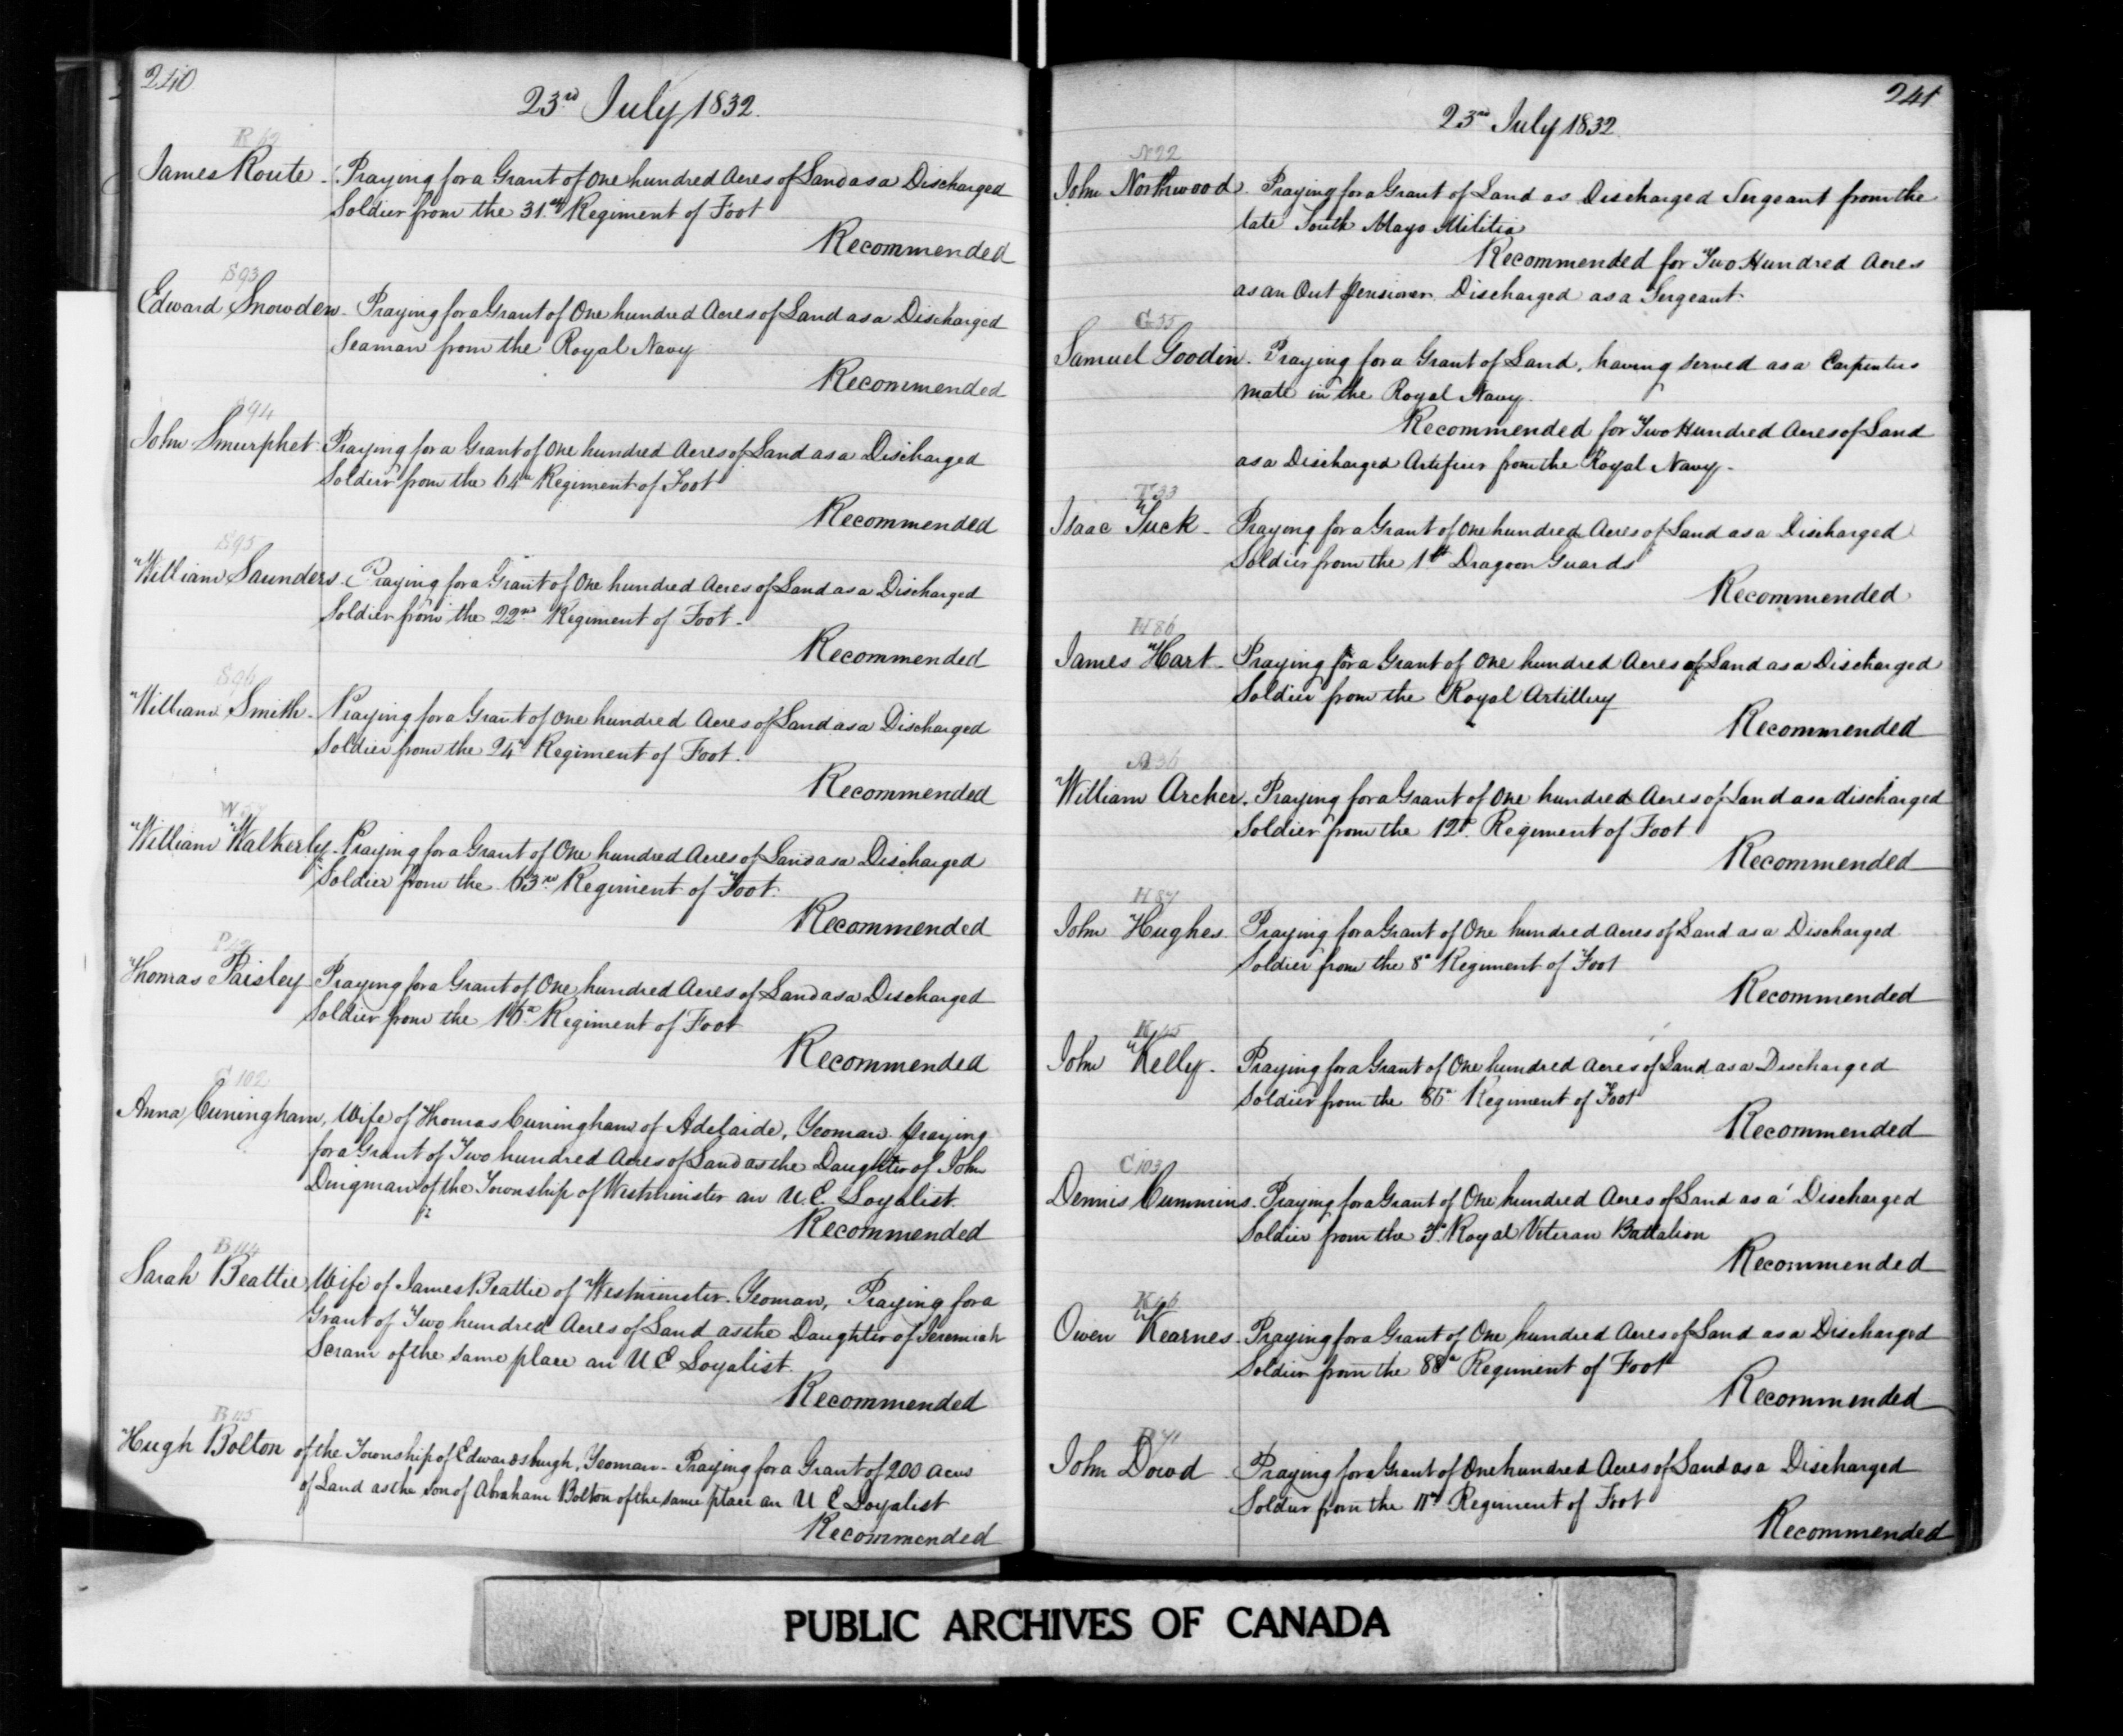 240
23rd July 1832.
R 62
James Route - Praying for a Grant of One hundred Acres of Land as a Discharged
Soldier from the 31st Regiment of Foot
Recommended
S 93
Edward Snowden - Praying for a Grant of One hundred Acres of Land as a Discharged
Seaman from the Royal Navy
Recommended
S 94
John Smurphet Praying for a Grant of One hundred Acres of Land as a Discharged
Soldier from the 64th Regiment of Foot
Recommended
S 95
William Saunders - Praying for a Grant of One hundred Acres of Land as a Discharged
Soldier from the 22nd Regiment of Foot -
Recommended
S 96
William Smith - Praying for a Grant of One hundred Acres of Land as a Discharged
Soldier from the 24th Regiment of Foot.
Recommended
William Walkerly - Praying for a Grant of One hundred Acres of Land as a Discharged
Soldier from the 63rd Regiment of Foot.
Recommended
Thomas Paisley Praying for a Grant of One hundred Acres of Land as a Discharged
Soldier from the 16th Regiment of Foot
Recommended
C 102
Anna Cuningham, Wife of Thomas Cuningham of Adelaide, Yeoman praying
for a Grant of Two hundred Acres of Land as the Daughter of John
Dingman of the Township of Westminster an U.E. Loyalist.
Recommended
B 114
Sarah Beattie, Wife of James Beattie of Westminster - Yeoman, Praying for a
Grant of Two hundred Acres of Land as the Daughter of Jeremiah
Scram of the same place an U E Loyalist.
Recommended
B 115
Hugh Bolton of the Township of Edwardsburgh, Yeoman - Praying for a Grant of 200 Acres
of Land as the son of Abraham Bolton of the same place an U E Loyalist
Recommended
241
23rd July 1832
N 22
John Northwood - Praying for a Grant of Land as Discharged Sergeant from the
late South Mayo Militia
Recommended for Two Hundred Acres
as an Out pensioner Discharged as a Sergeant.
G 55
Samuel Goodin - Praying for a Grant of Land, having served as a Carpenters
mate in the Royal Navy.
Recommended for Two Hundred Acres of Land
as a Discharged Artificer from the Royal Navy -
T 33
Isaac Tuck - Praying for a Grant of One hundred Acres of Land as a Discharged
Soldier from the 1st Dragoon Guards
Recommended
H 86
James Hart - Praying for a Grant of One hundred Acres of Land as a Discharged
Soldier from the Royal Artillery
Recommended
A 36
William Archer. Praying for a Grant of One hundred Acres of Land as a discharged
Soldier from the 12th Regiment of Foot
Recommended
H 87
John Hughes Praying for a Grant of One hundred Acres of Land as a Discharged
Soldier from the 8th Regiment of Foot
Recommended
K 45
John Kelly - Praying for a Grant of One hundred Acres of Land as a Discharged
Soldier from the 85th Regiment of Foot
Recommended
C 103
Dennis Cummins - Praying for a Grant of One hundred Acres of Land as a Discharged
Soldier from the 3d Royal Veteran Battalion
Recommended
K 46
Owen Kearnes Praying for a Grant of One hundred Acres of Land as a Discharged
Soldier from the 88th Regiment of Foot
Recommended
John Dowd Praying for a Grant of One hundred Acres of Land as a Discharged
Soldier from the 11th Regiment of Foot
Recommended
PUBLIC ARCHIVES OF CANADA